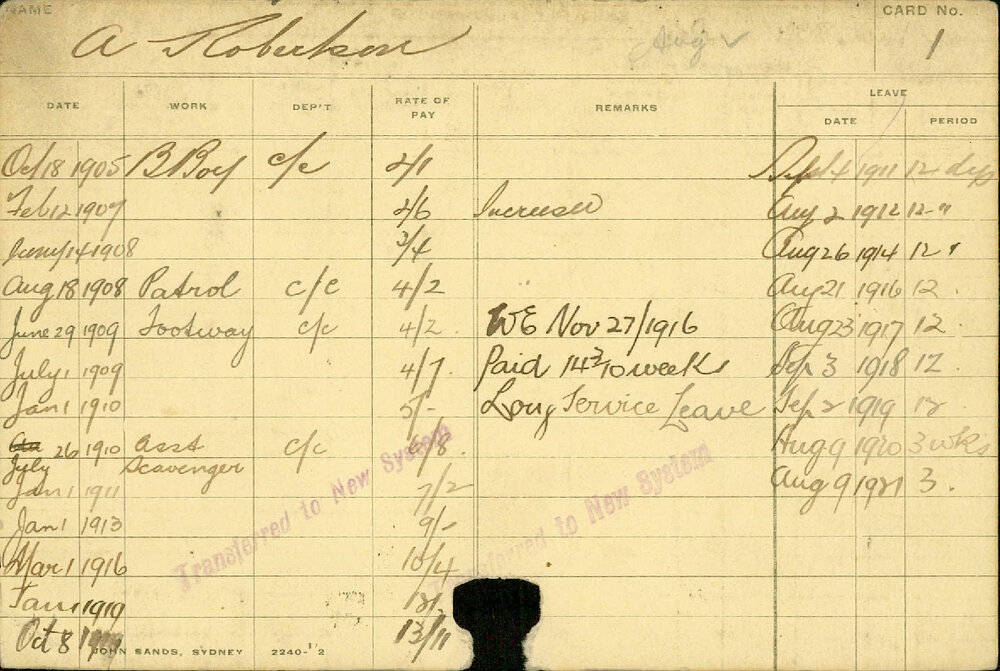 NAME
CARD No.
A Robertson
1
DATE WORK DEP'T RATE OF PAY REMARKS LEAVE
DATE PERIOD
Oct 18 1905 B Boy c/c 2/1 Sept 4 1911 12 dys
Feb 12 1907 2/6 Increased Aug 2 1912 12 "
Jany 14 1908 3/4 Aug 26 1914 12 "
Aug 18 1908 Patrol c/c 4/2 Aug 21 1916 12
June 29 1909 Footway c/c 4/2 WE Nov 27/1916 Aug 23 1917 12
July 1 1909 4/7 Paid 14 3/10 weeks Sep 3 1918 12
Jan 1 1910 5/- Long Service Leave Sep 2 1919 12
26 1910 Asst c/c 6/8 Aug 9 1920 3 wks
July Scavenger
Jan 1 1911 7/2 Aug 9 1921 3
Jan 1 1913 9/-
Mar 1 1916 10/4
Jan 1 1919
Oct 8 13/11
Transferred to New System
Transferred to New System
JOHN SANDS, SYDNEY 2240-'12